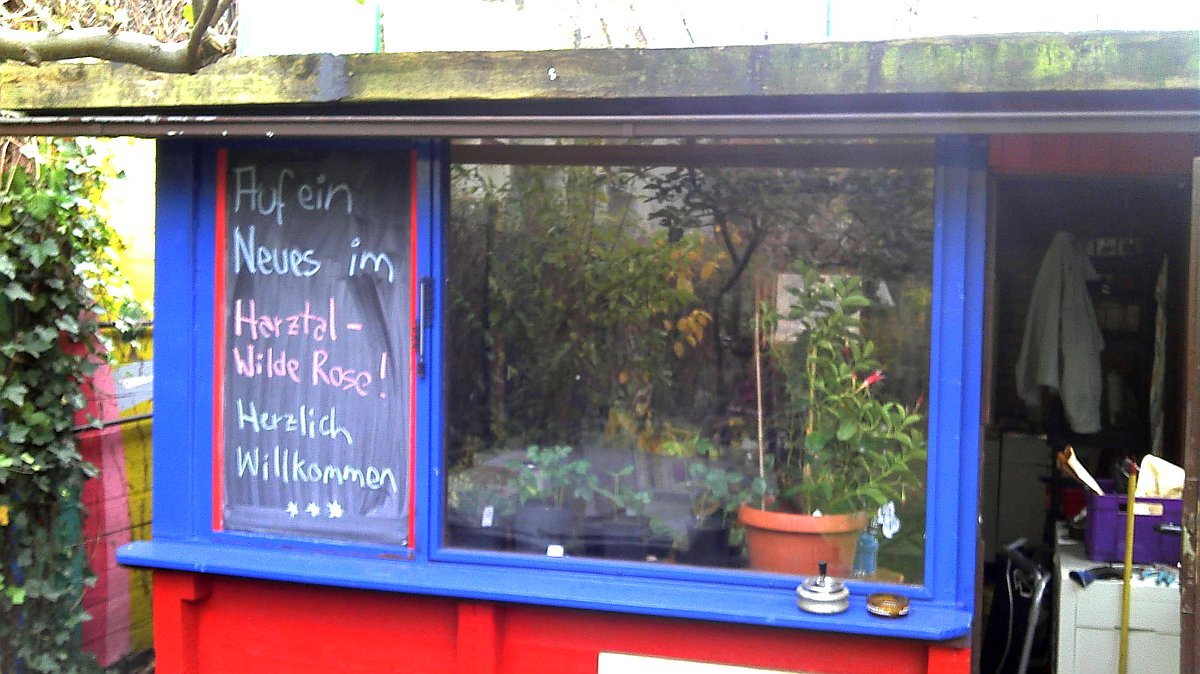 Auf ein
Neues im
Harztal-
Wilde Rose!
Herzlich
Willkommen